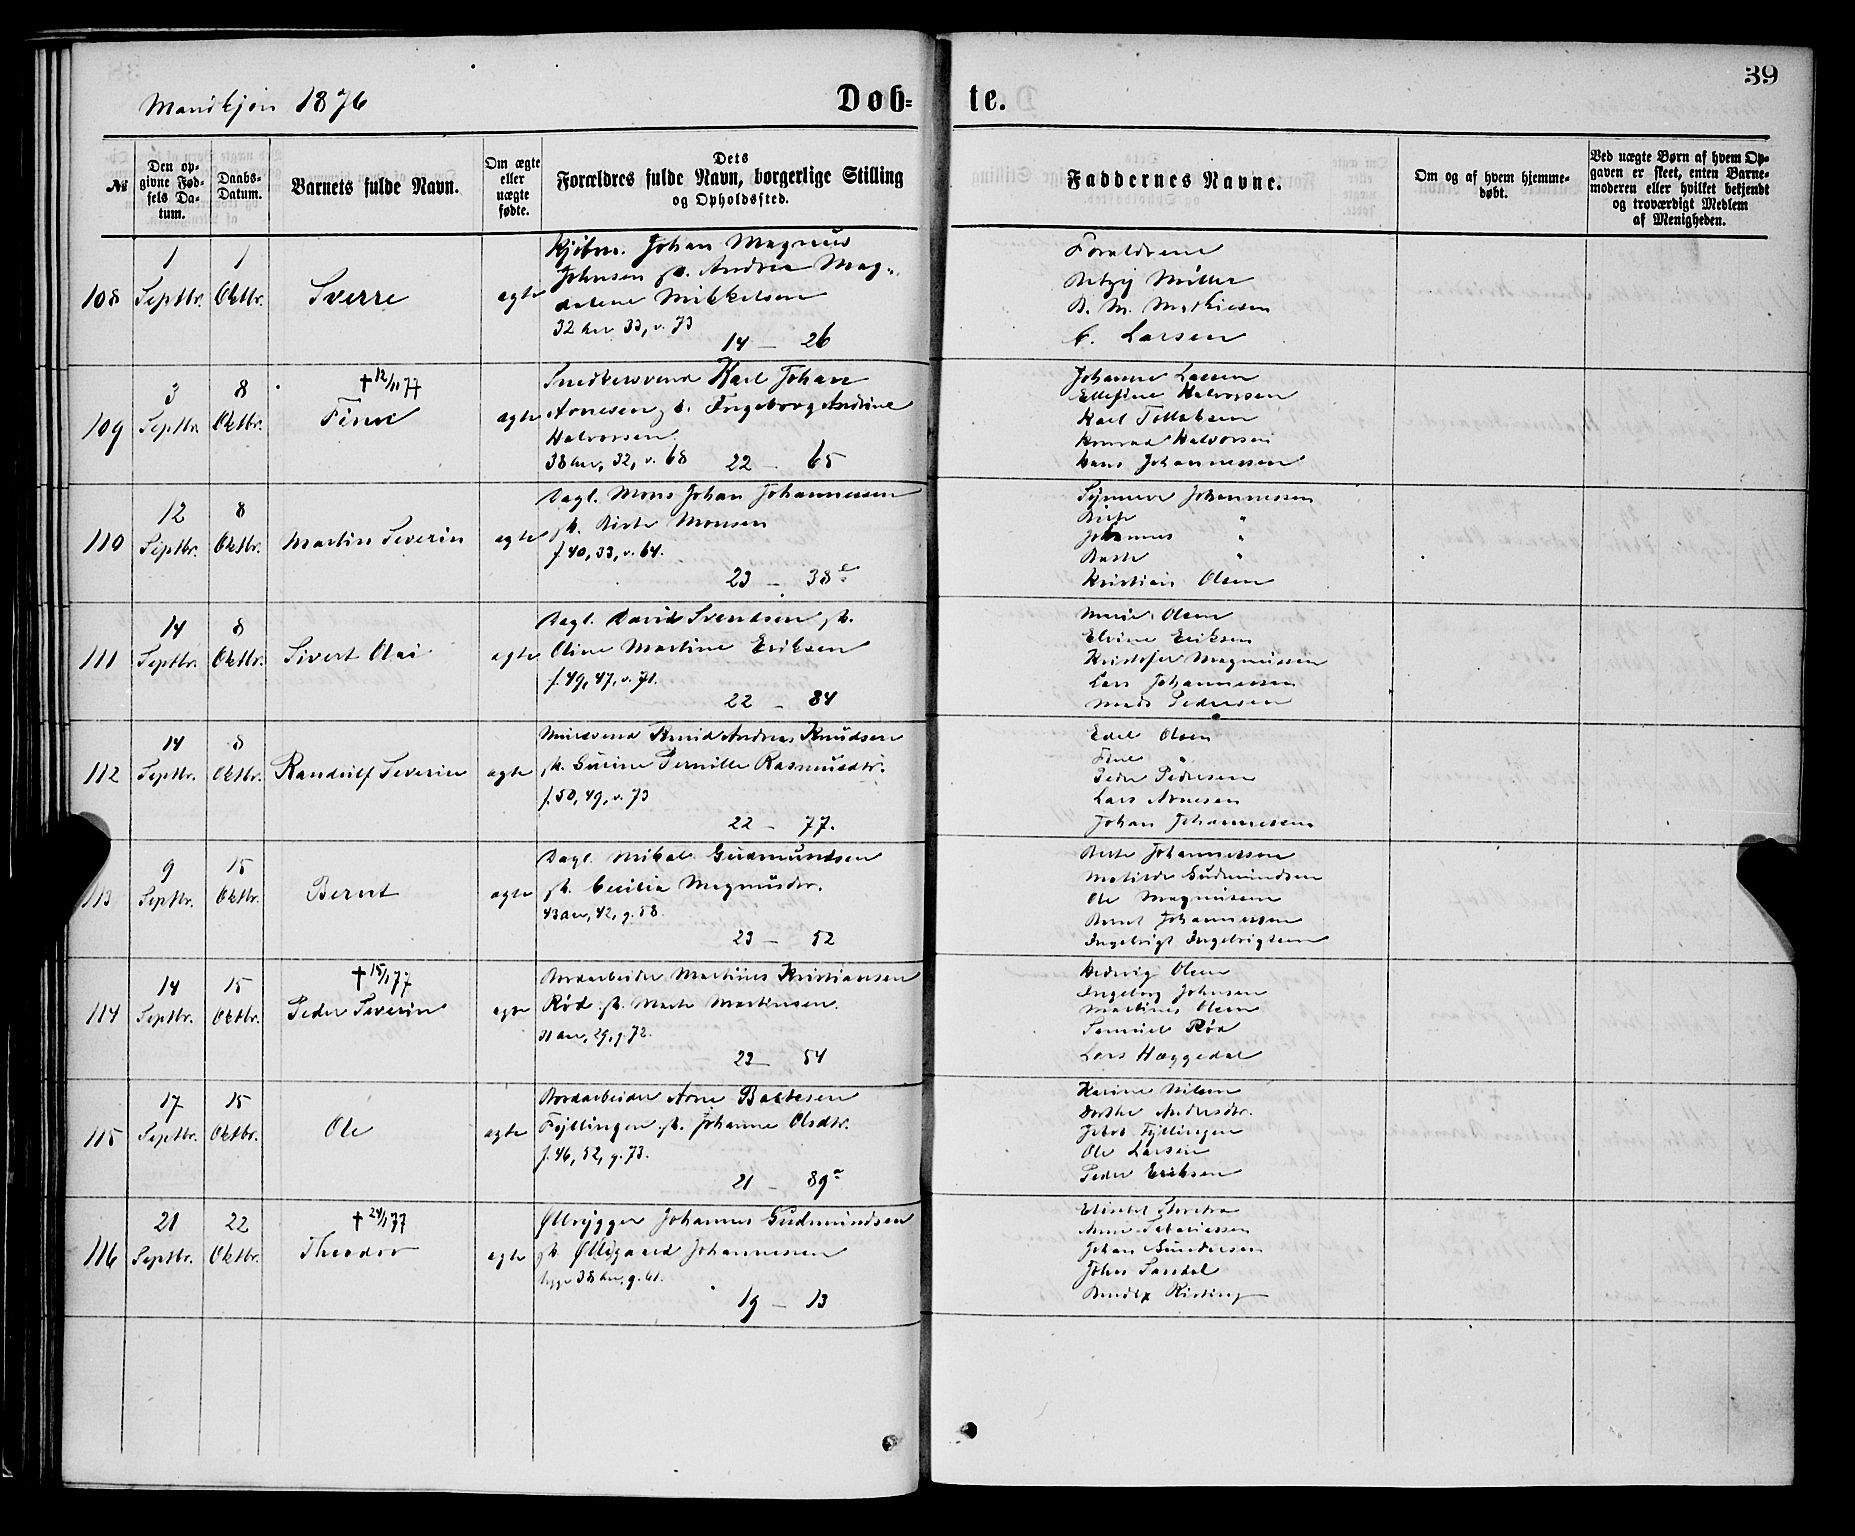 39
Mandkjøn 1876
Døb- te.
№
Den op-
givne Fød-
sels Da-
tum.
Daabs-
Datum.
Barnets fulde Navn.
Om ægte
eller
uægte
fødte.
Dets
Forældres fulde Navn, borgerlige Stilling
og Opholdssted.
Faddernes Navne.
Om og af hvem hjemme-
døbt.
Ved uægte Børn af hvem Op-
gaven er skeet, enten Barne-
moderen eller hvilket bekjendt
og troværdigt Medlem
af Menigheden.
108
1 Septbr.
1 Oktbr.
Sverre
ægte
Kjøbm. Johan Magnus
Johnsen Andrea Mag-
dalene Mikkelsen
32 33, v. 73
14 - 26
Forældrene
Betzy Müller
B. M. Mathiesen
C. Larsen
109
3 Septbr.
8 Oktbr.
† 12/11 77
Finn
ægte
Snedkersvend Karl Johan
Arnesen Ingeborg Andrine
Halvorsen
38 32, v. 68 22 - 65
Johanne Larsen
Ellefine Halvorsen
Karl Tollaksen
Konrad Halvorsen
Hans Johannessen
110
12 Septbr.
8 Oktbr.
Martin Severin
ægte
Dagl. Mons Johan Johannessen
Berte Monsen
f. 40, 33, v. 64.
23 - 38
Johannessen
Berte "
Johannes "
"
Kristian Olsen
111
14 Septbr.
8 Oktbr.
Sivert Olai
ægte
Dagl. David Svendsen
Oline Martine Eriksen
f. 49, 47, v. 71.
22 - 84
Marie Olsen
Elvine Eriksen
Kristofer Magnussen
Lars Johannessen
Mads Pedersen
112
14 Septbr.
8 Oktbr.
Randulf Severin
ægte
Andreas Knudsen
Pernille Rasmusdtr.
f. 50, 49, v. 73
22 - 77.
Edel Olsen
Peder Pedersen
Lars Arnesen
Johan Johannessen
113
9 Septbr.
15 Oktbr.
Bernt
ægte
Dagl. Mikal Gudmundsen
Cecilia Magnusdtr.
43 42, g. 58.
23 - 52
Berte Johannessen
Matilde Gudmundsen
Ole Magnussen
Bernt Johannessen
Ingebrigt Ingebrigtsen
114
14 Septbr.
15 Oktbr.
† 15/1 77
Peder Severin
ægte
Jordarbeider Martinus Kristiansen
Rød Marte Martinsen.
31 29, g. 72.
22 - 54
Hedevig Olsen
Ingeborg Johnsen
Martinus Olsen
Samuel Rød
Lars Haggedal
115
17 Septbr.
15 Oktbr.
Ole
ægte
Jordarbeider Arne
Fyllingen Johanne Olsdtr.
f. 46, 52, g. 73.
21 - 89
Karine Nilsen
Dorthe Andersdtr.
Jakob Fyllingen
Ole Larsen
Peder Eriksen
116
21 Septbr.
22 Oktbr.
† 24/1 77
Theodor
ægte
Ølbrygger Johannes Gudmundsen
Ølegaard Johannessen
38 g. 61.
19 - 13
Johan Gundersen
John Sandal